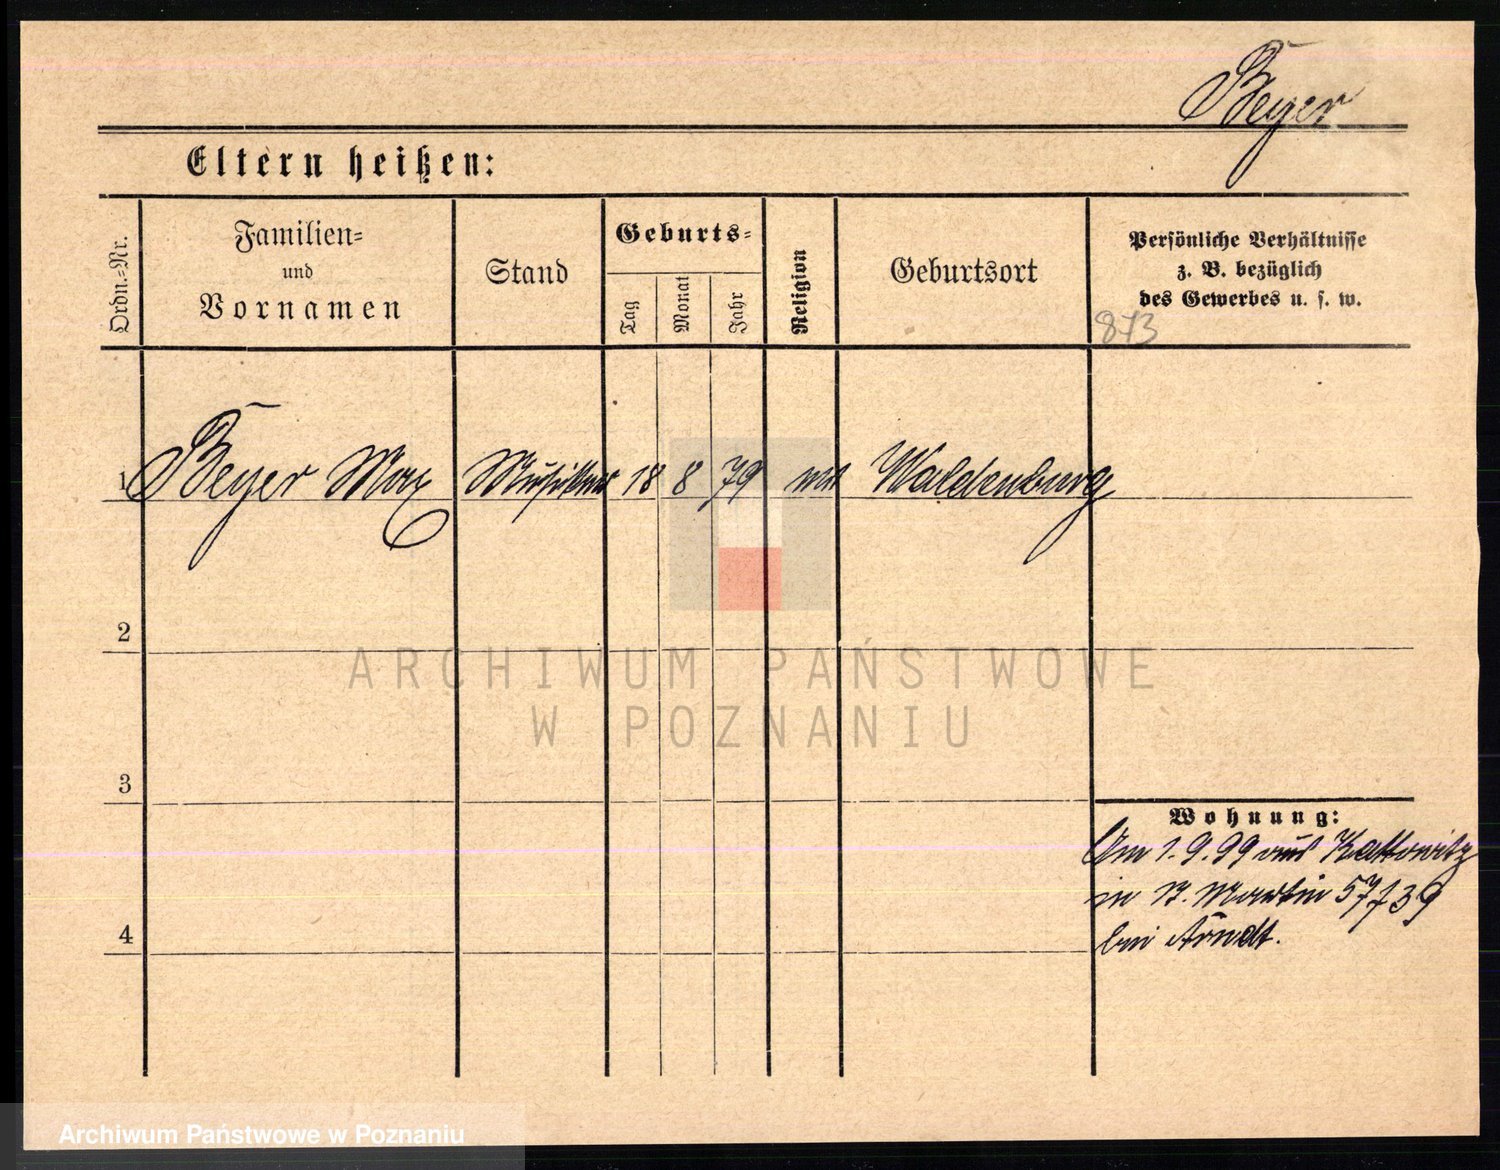 Beyer
Eltern heißen:
Ordn.-Nr.
Familien-
und
Vornamen
Stand
Geburts-
Tag
Monat
Jahr
Religion
Geburtsort
Persönliche Verhältnisse
z. B. bezüglich
des Gewerbes u. s. w.
873
1 Beyer Max Musiker 18 8 79 Waldenburg
2
ARCHIWUM PAŃSTWOWE
W POZNANIU
3
Wohnung:
Am 1.9.99 aus Kattowitz
in St. Martin 57/39
4
bei Arndt.
Archiwum Państwowe w Poznaniu